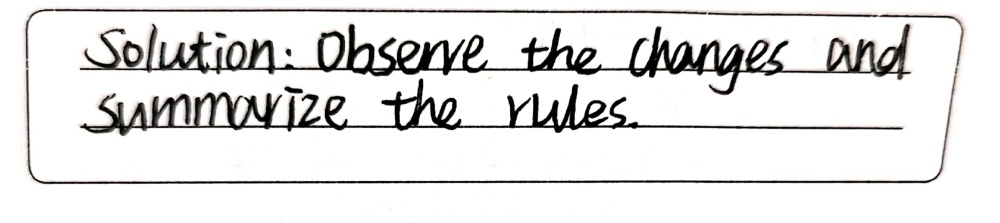 Solution: Observe the changes and
summarize the rules.